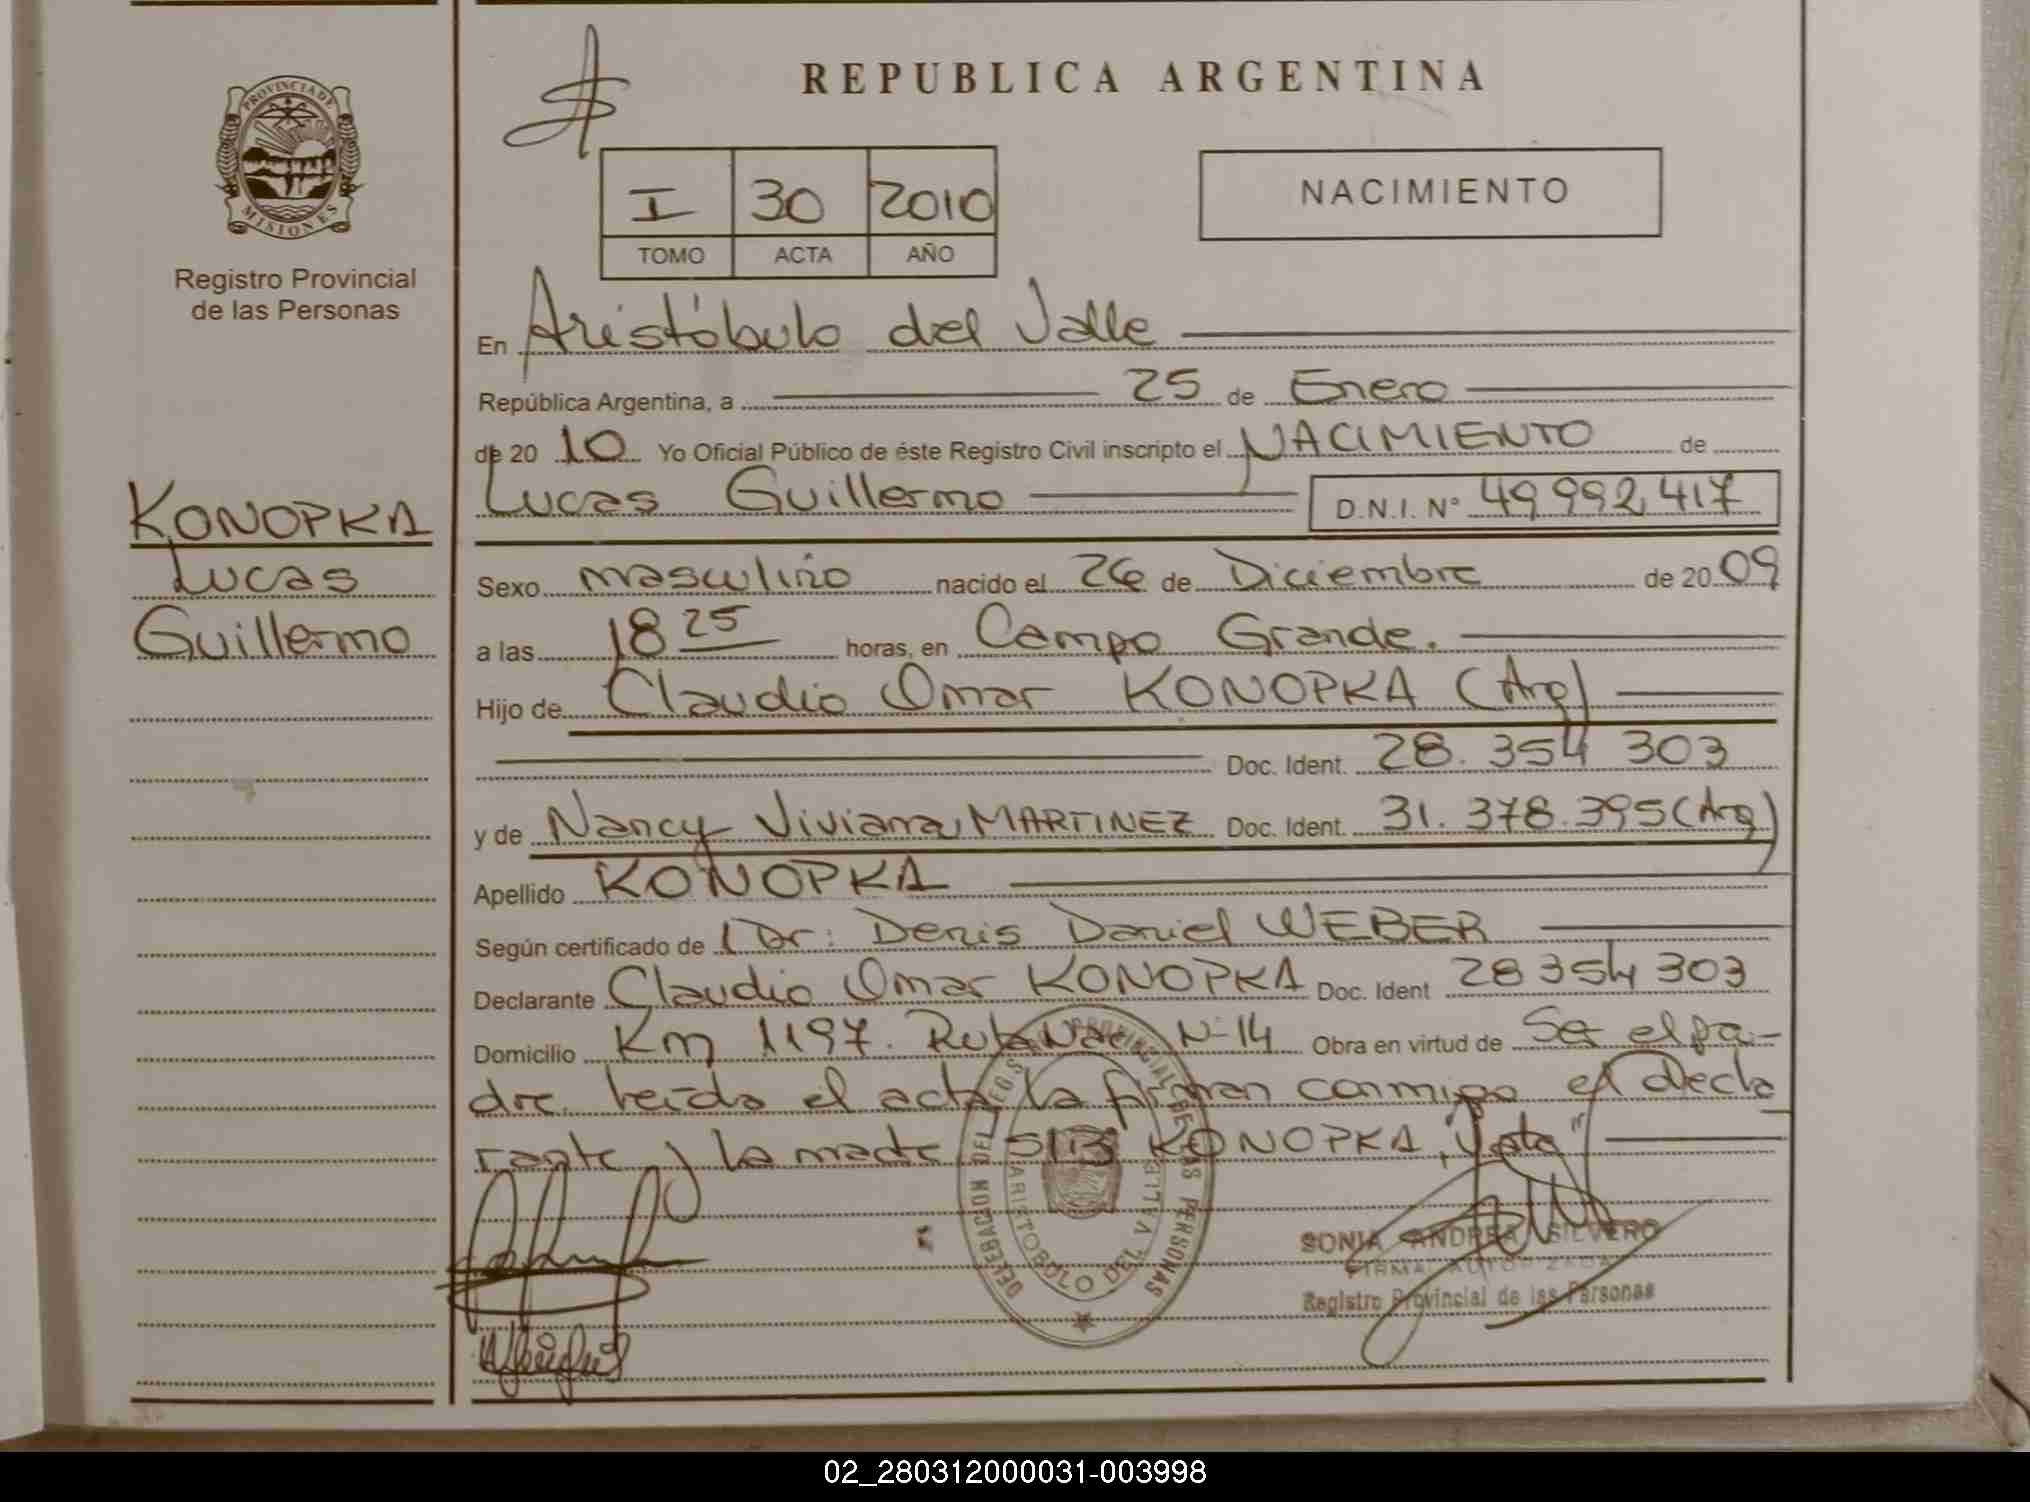 REPUBLICA ARGENTINA
PROVINCIA DE
MISIONES
Registro Provincial
de las Personas
I 30 2010
TOMO ACTA AÑO
NACIMIENTO
En Aristóbulo del Valle
República Argentina, a 25 de Enero
de 20 10 Yo Oficial Público de éste Registro Civil inscripto el NACIMIENTO de
Lucas Guillermo D.N.I. Nº 49 992 417
KONOPKA
Lucas
Guillermo
Sexo masculino nacido el 26 de Diciembre de 20 09
a las 18 25 horas, en Campo Grande.
Hijo de Claudio Omar KONOPKA (Arg)
Doc. Ident. 28. 354 303
y de Nancy Viviana MARTINEZ Doc. Ident. 31. 378. 395 (Arg)
Apellido KONOPKA
Según certificado de Dr: Denis Daniel WEBER
Declarante Claudio Omar KONOPKA Doc. Ident 28 354 303
Domicilio Km 1197. Ruta Nac N-14 Obra en virtud de Ser el pa-
dre. leída el acta la firman conmigo el decla
rante y la madre S/R KONOPKA, "Vale"
DELEGACION DEL REG. PROVINCIAL DE LAS PERSONAS
ARISTOBULO DEL VALLE
SONIA ANDREA SILVERO
FIRMA AUTORIZADA
Registro Provincial de las Personas
02_280312000031-003998